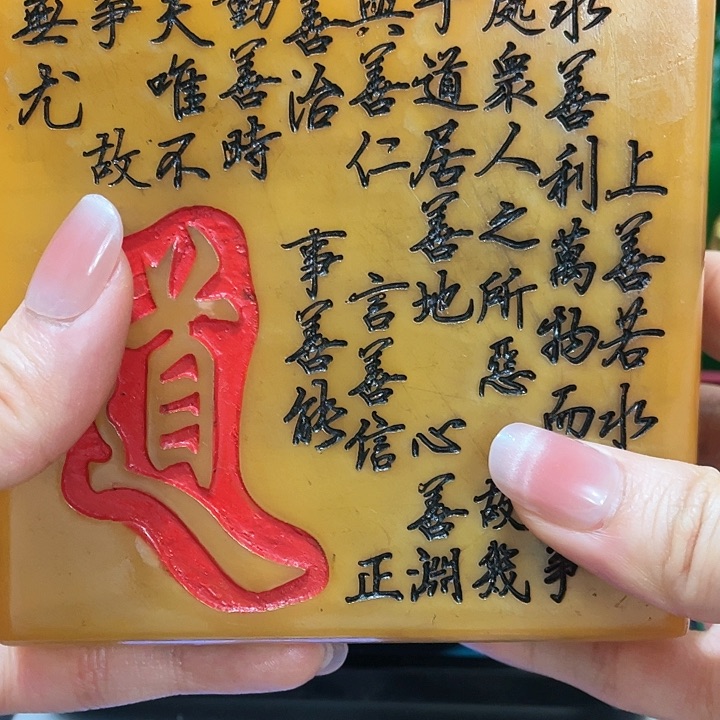 上善若水
水善利萬物而爭
處衆人之所惡故幾
于道居善地心善淵
與善仁言善信正
善治事善能
動善時
夫唯不
爭故
無尤
道